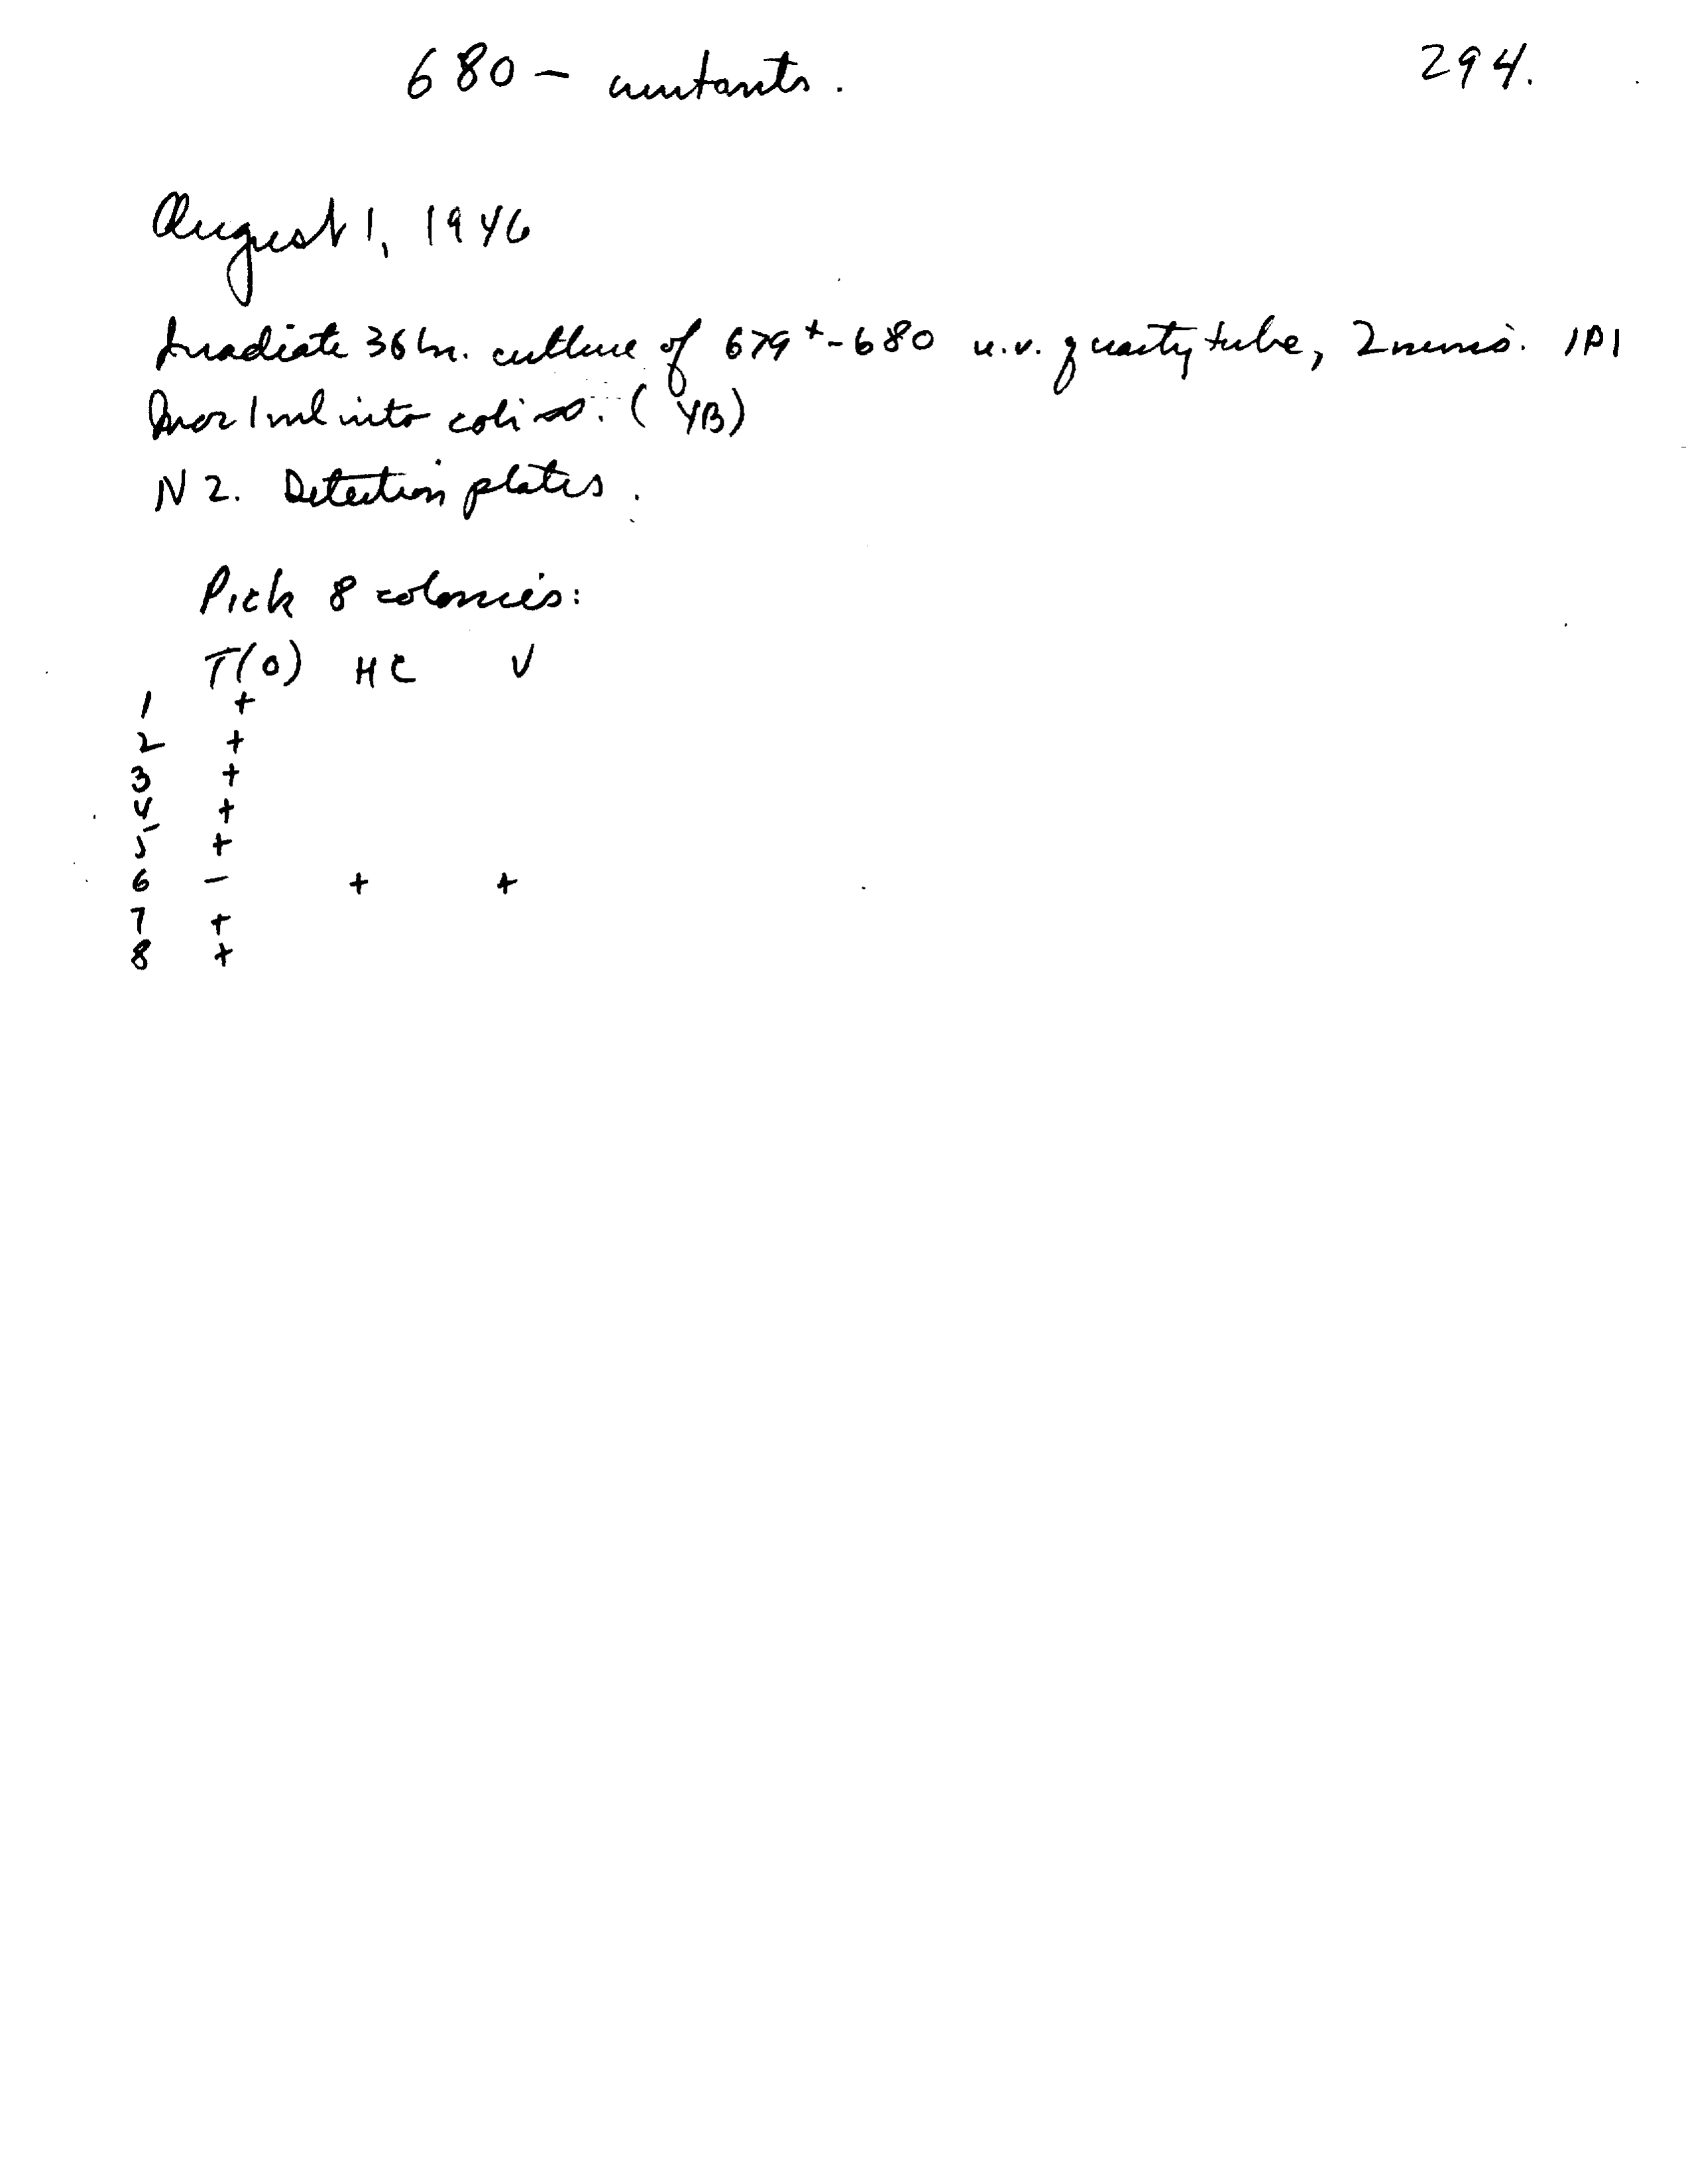 680 - mutants. 294.
August 1, 1946
Irradiate 36 hr. culture of 679+-680 u.v. quartz tube, 2 mins.
1 ml into coli (YB)
N 2. Detection plates.
Pick 8 colonies:
T(0) HC V
1 +
2 +
3 +
4 +
5 +
6 - + +
7 +
8 +